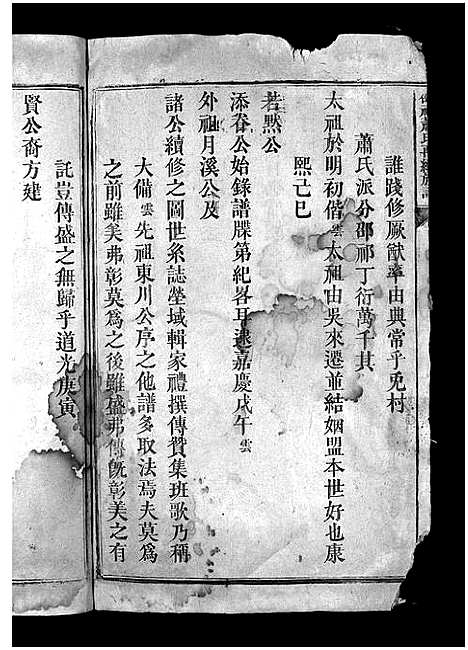 誰踐修厥猷率由典常乎兎村
蕭氏派分邵祁丁衍萬千其
太祖於明初偕雲太祖由吳來遷並結姻盟本世好也康
熙己巳
若黙公
添眘公始錄譜牒第紀各耳逮嘉慶戊午雲
外祖月溪公及
諸公續修之圖世系誌塋域輯家禮撰傳贊集班歌乃稱
大備雲先祖東川公序之他譜多取法焉夫莫爲
之前雖美弗彰莫爲之後雖盛弗傳旣彰美之有
託豈傳盛之無歸乎道光庚寅
賢公裔方建